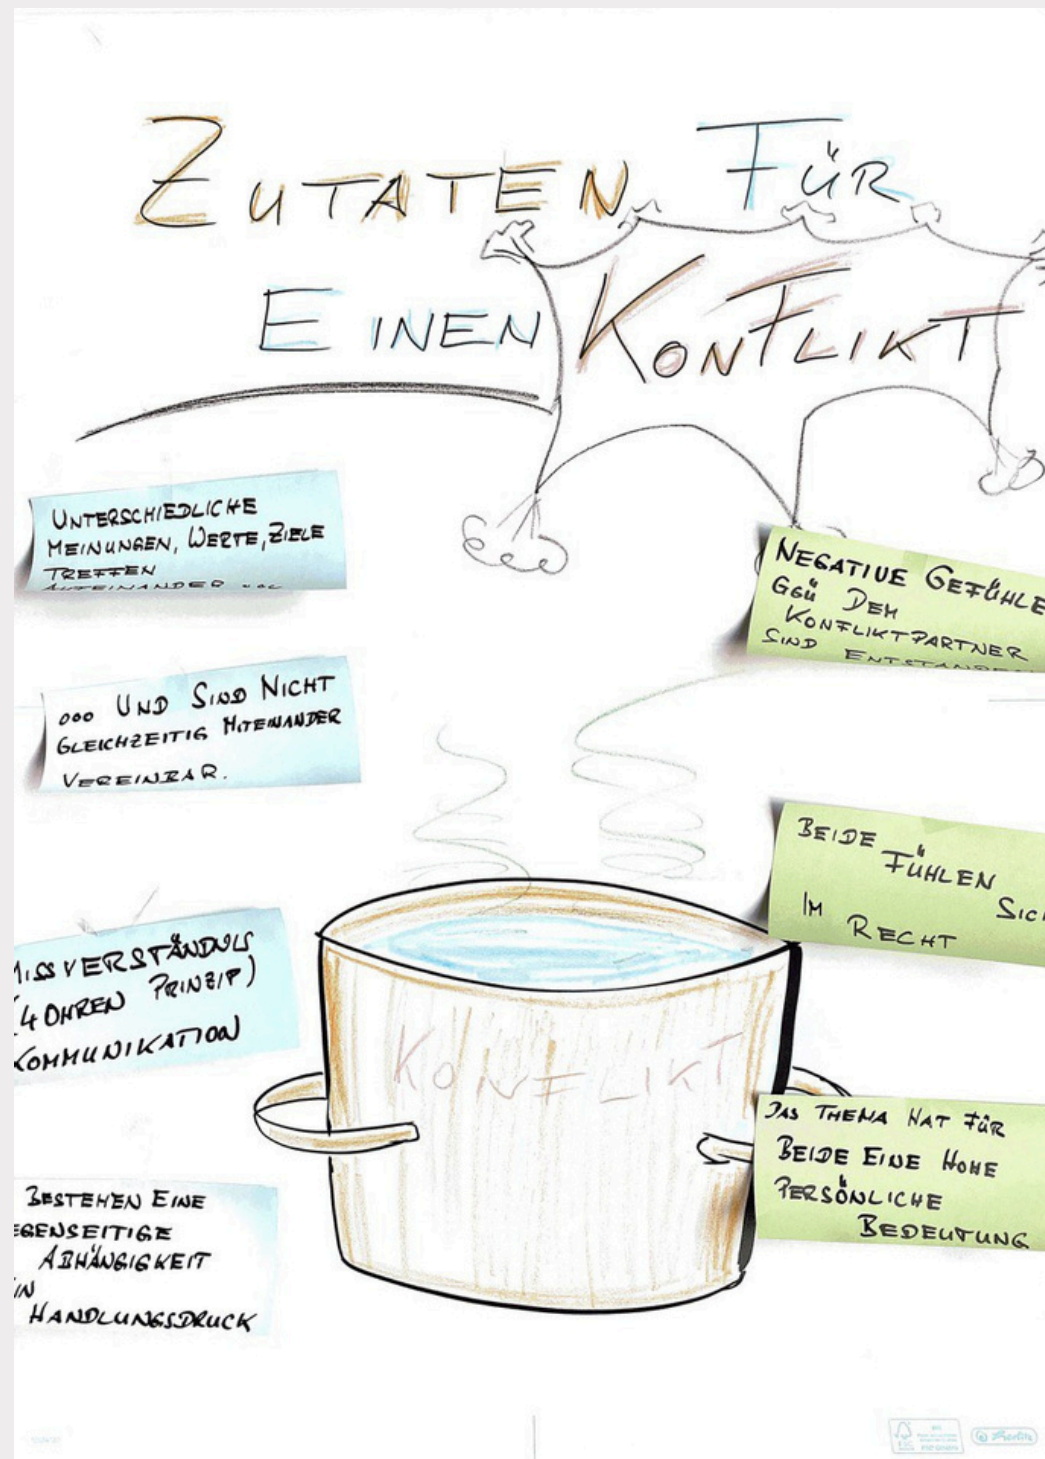 ZUTATEN FÜR
EINEN KONFLIKT
UNTERSCHIEDLICHE
MEINUNGEN, WERTE, ZIELE
TREFFEN
AUFEINANDER ...
... UND SIND NICHT
GLEICHZEITIG MITEINANDER
VEREINBAR.
MISSVERSTÄNDNIS
(4 OHREN PRINZIP)
KOMMUNIKATION
BESTEHEN EINE
EGENSEITIGE
ABHÄNGIGKEIT
IN
HANDLUNGSDRUCK
NEGATIVE GEFÜHLE
GGÜ DEM
KONFLIKTPARTNER
SIND ENTSTANDE
BEIDE
FÜHLEN
SIC
IM
RECHT
DAS THEMA HAT FÜR
BEIDE EINE HOHE
PERSÖNLICHE
BEDEUTUNG
KONFLIKT
FSC
herlitz